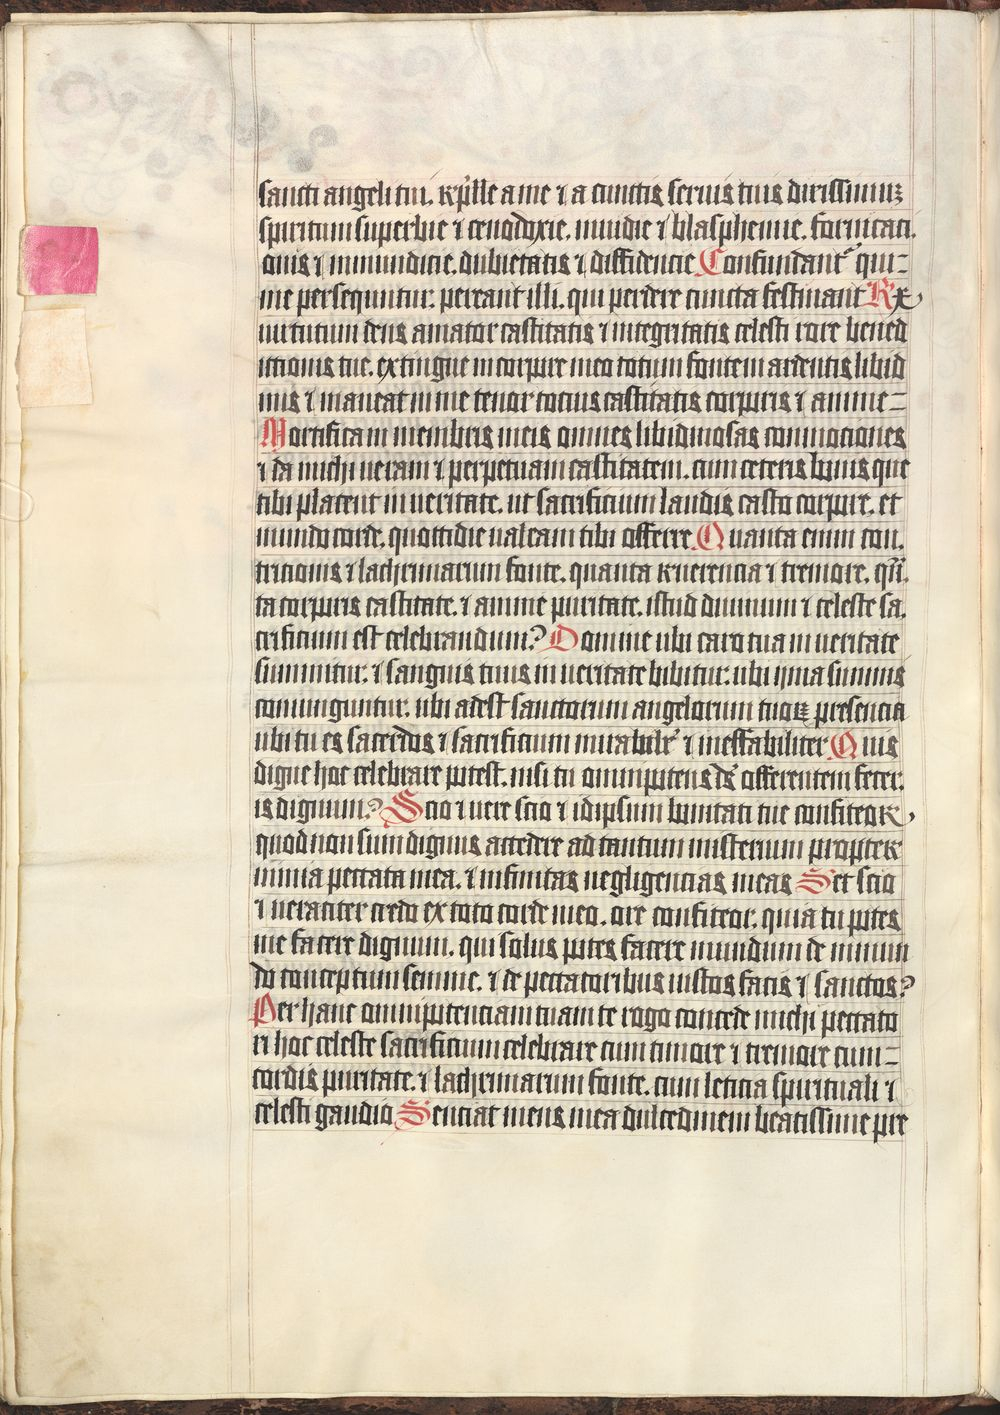 sancti angeli tui. Rep̄lle a me ⁊ a cunctis seruis tuis dirissimūꝫ
spiritum superbie ⁊ cenodoxie. inuidie ⁊ blasphemie. fornicati
onis ⁊ immundicie. dubietatis ⁊ diffidencie Confundantᷣ qui-
me persequuntur: pereant illi. qui perdere cuncta festinant Rex
uirtutum deus amator castitatis ⁊ integritatis celesti rore bened
ictionis tue. extingue in corpore meo totum fontem ardentis libid
inis ⁊ maneat in me tenor tocius castitatis corporis ⁊ anime-
Mortifica in membris meis omnes libidinosas commociones
⁊ da michi ueram ⁊ perpetuam castitatem. cum ceteris bonis que
tibi placent in ueritate. ut sacrificium laudis casto corpore. et
mundo corde. quottidie ualeam tibi offerre. Quanta enim con.
tricionis ⁊ lachrimarum fonte. quanta reuerencia ⁊ tremore. qūā.
ta corporis castitate. ⁊ anime puritate. istud diuinum ⁊ celeste sa.
crificium est celebrandum? Domine ubi caro tua in ueritate
summitur. ⁊ sanguis tuus in ueritate bibitur. ubi yma summis
coniunguntur. ubi adest sanctorum angelorum tuoꝝ presencia
ubi tu es sacerdos ⁊ sacrificium mirabilrᷣ ⁊ ineffabiliter Quis
digne hoc celebrare potest. nisi tu omnipotens dś offerentem fecer.
is dignum? Scio ⁊ uere scio ⁊ idipsum bonitati tue confiteor
quod non sum dignus accedere ad tantum misterium propter
nimia peccata mea. ⁊ infinitas negligencias meas Set scio
⁊ ueraciter credo ex toto corde meo. ore confiteor. quia tu potes
me facere dignum. qui solus potes facere mundum de inmun
do conceptum semine. ⁊ de peccatoribus iustos facis ⁊ sanctos?
Per hanc omnipotenciam tuam te rogo concede michi peccato
ri hoc celeste sacrificium celebrare cum timore ⁊ tremore cum-
cordis puritate. ⁊ lachrimarum fonte. cum leticia spirituali ⁊
celesti gaudio Senciat mens mea dulcedinem beatissime pre